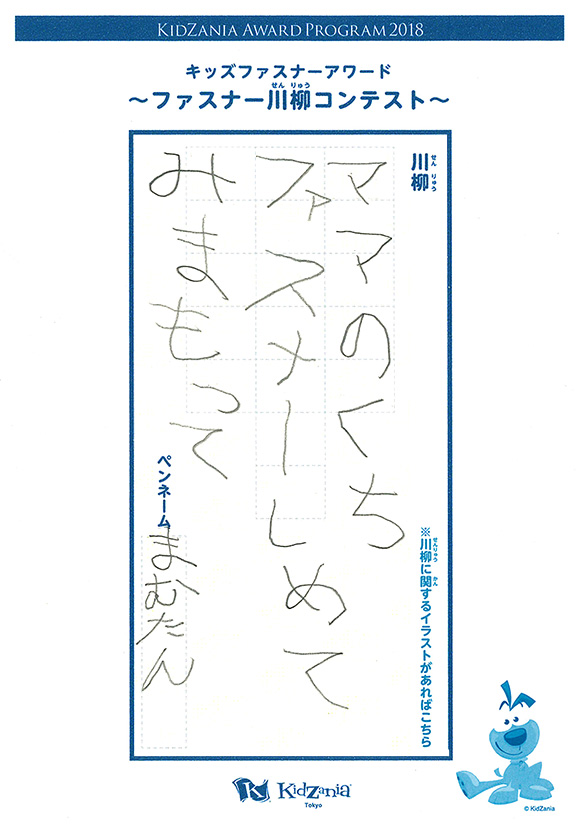 KIDZANIA AWARD PROGRAM 2018
キッズファスナーアワード
～ファスナー川柳コンテスト～
せん りゅう
川柳
せん りゅう
ママのくち
ファスナーしめて
みまもって
ペンネーム
まむたん
※川柳に関するイラストがあればこちら
せんりゅう かん
K KidZania
Tokyo
© KidZania